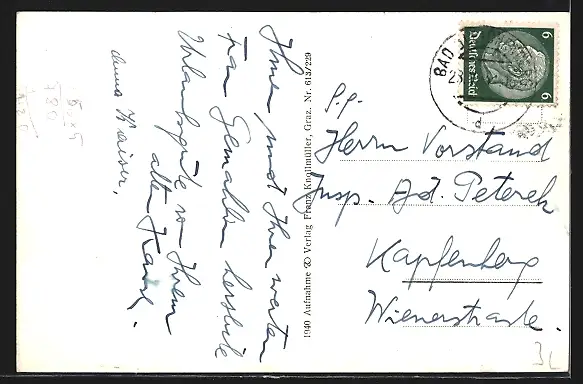 Ihnen und Ihrer werten
Frau Gemahlin herzliche
Urlaubsgrüße v. Ihrem
alten
Anna Kaiser.
1940 Aufnahme Verlag Franz Knollmüller, Graz. Nr. 613/229
BAD
Deutsches Reich
6
6
P.P.
Herrn Vorstand
Insp. Ad. Peterek
Kapfenberg
Wienerstraße.
3L